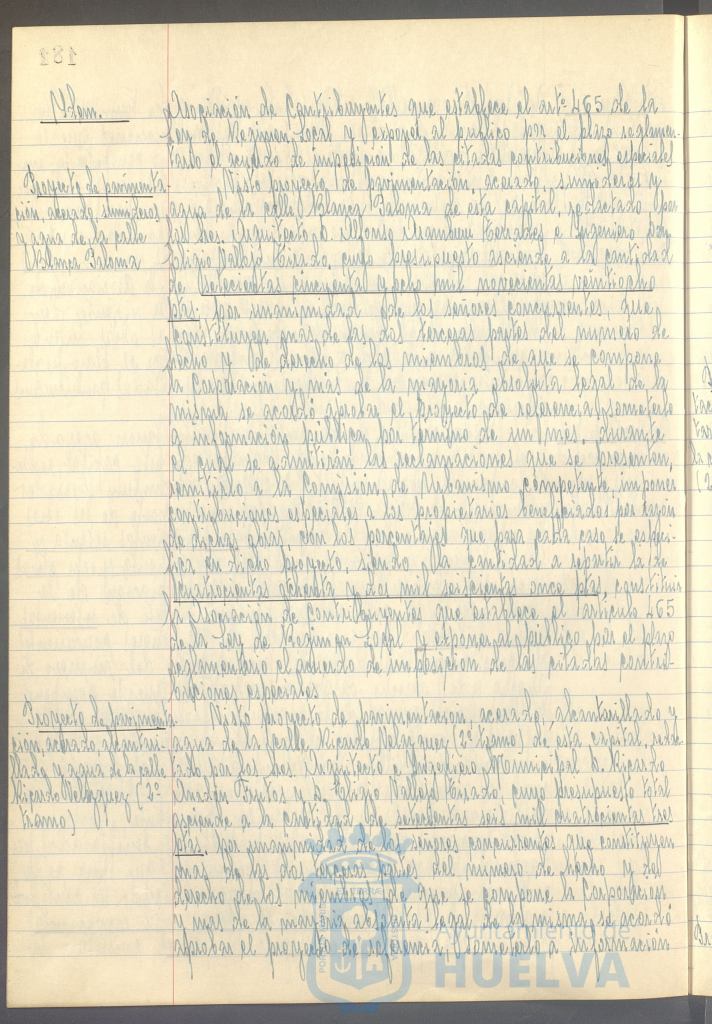 182
Idem.
Asociación de Contribuyentes que establece el artº 465 de la
Ley de Regimen Local y exponer al publico por el plazo reglamen-
tario el acuerdo de imposición de las citadas contribuciones especiales
Proyecto de pavimenta-
ción, acerado, sumideros
y agua de la calle
Blanca Paloma
Visto proyecto de pavimentación, acerado, sumideros y
agua de la calle Blanca Paloma de esta capital, redactado por
los Sres. Arquitecto D. Alfonso Aramburu Terrades e Ingeniero Don
Eligio Vallejo Tirado, cuyo presupuesto asciende a la cantidad
de setecientas cincuenta y ocho mil novecientas veintiocho
ptas. por unanimidad de los señores concurrentes, que
constituyen mas de las dos terceras partes del numero de
hecho y de derecho de los miembros de que se compone
la Corporación y mas de la mayoria absoluta legal de la
misma se acordó aprobar el proyecto de referencia, someterlo
a información pública por termino de un mes, durante
el cual se admitirán las reclamaciones que se presenten,
remitirlo a la Comisión de Urbanismo competente, imponer
contribuciones especiales a los propietarios beneficiados por razón
de dichas obras con los porcentajes que para cada caso se especi-
fica en dicho proyecto, siendo la cantidad a repartir la de
cuatrocientas ochenta y dos mil seiscientas once ptas, constituir
la Asociación de Contribuyentes que establece el articulo 465
de la Ley de Regimen Local y exponer al público por el plazo
reglamentario el acuerdo de imposición de las citadas contri-
buciones especiales
Proyecto de pavimenta-
ción, acerado, alcantari-
llado y agua de la calle
Ricardo Velazquez (2º
tramo)
Visto proyecto de pavimentación, acerado, alcantarillado y
agua de la calle Ricardo Velazquez (2º tramo) de esta capital, redac-
tado por los Sres. Arquitecto e Ingeniero Municipal D. Ricardo
Anadón Frutos y D. Eligio Vallejo Tirado, cuyo presupuesto total
asciende a la cantidad de setecientas seis mil cuatrocientas tres
ptas. por unanimidad de los señores concurrentes que constituyen
mas de las dos terceras partes del número de hecho y del
derecho de los miembros de que se compone la Corporación
y mas de la mayoria absoluta legal de la misma se acordó
aprobar el proyecto de referencia, someterlo a información
Ayuntamiento de
HUELVA